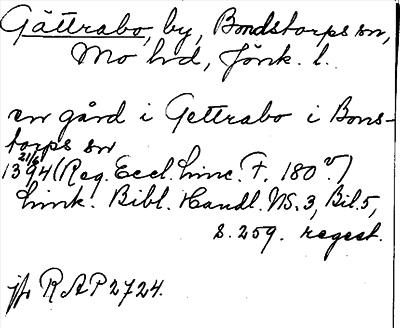 Gättrabo, by, Bondstorps sn,
Mo hd, Jönk. l.
en gård i Gettrabo i Bons-
torps sn
21/6
1394 (Reg. Eccl. Linc. F. 180 v.)
Link. Bibl. Handl. NS. 3, Bil. 5,
S. 259. regest.
jfr RAP 2724.